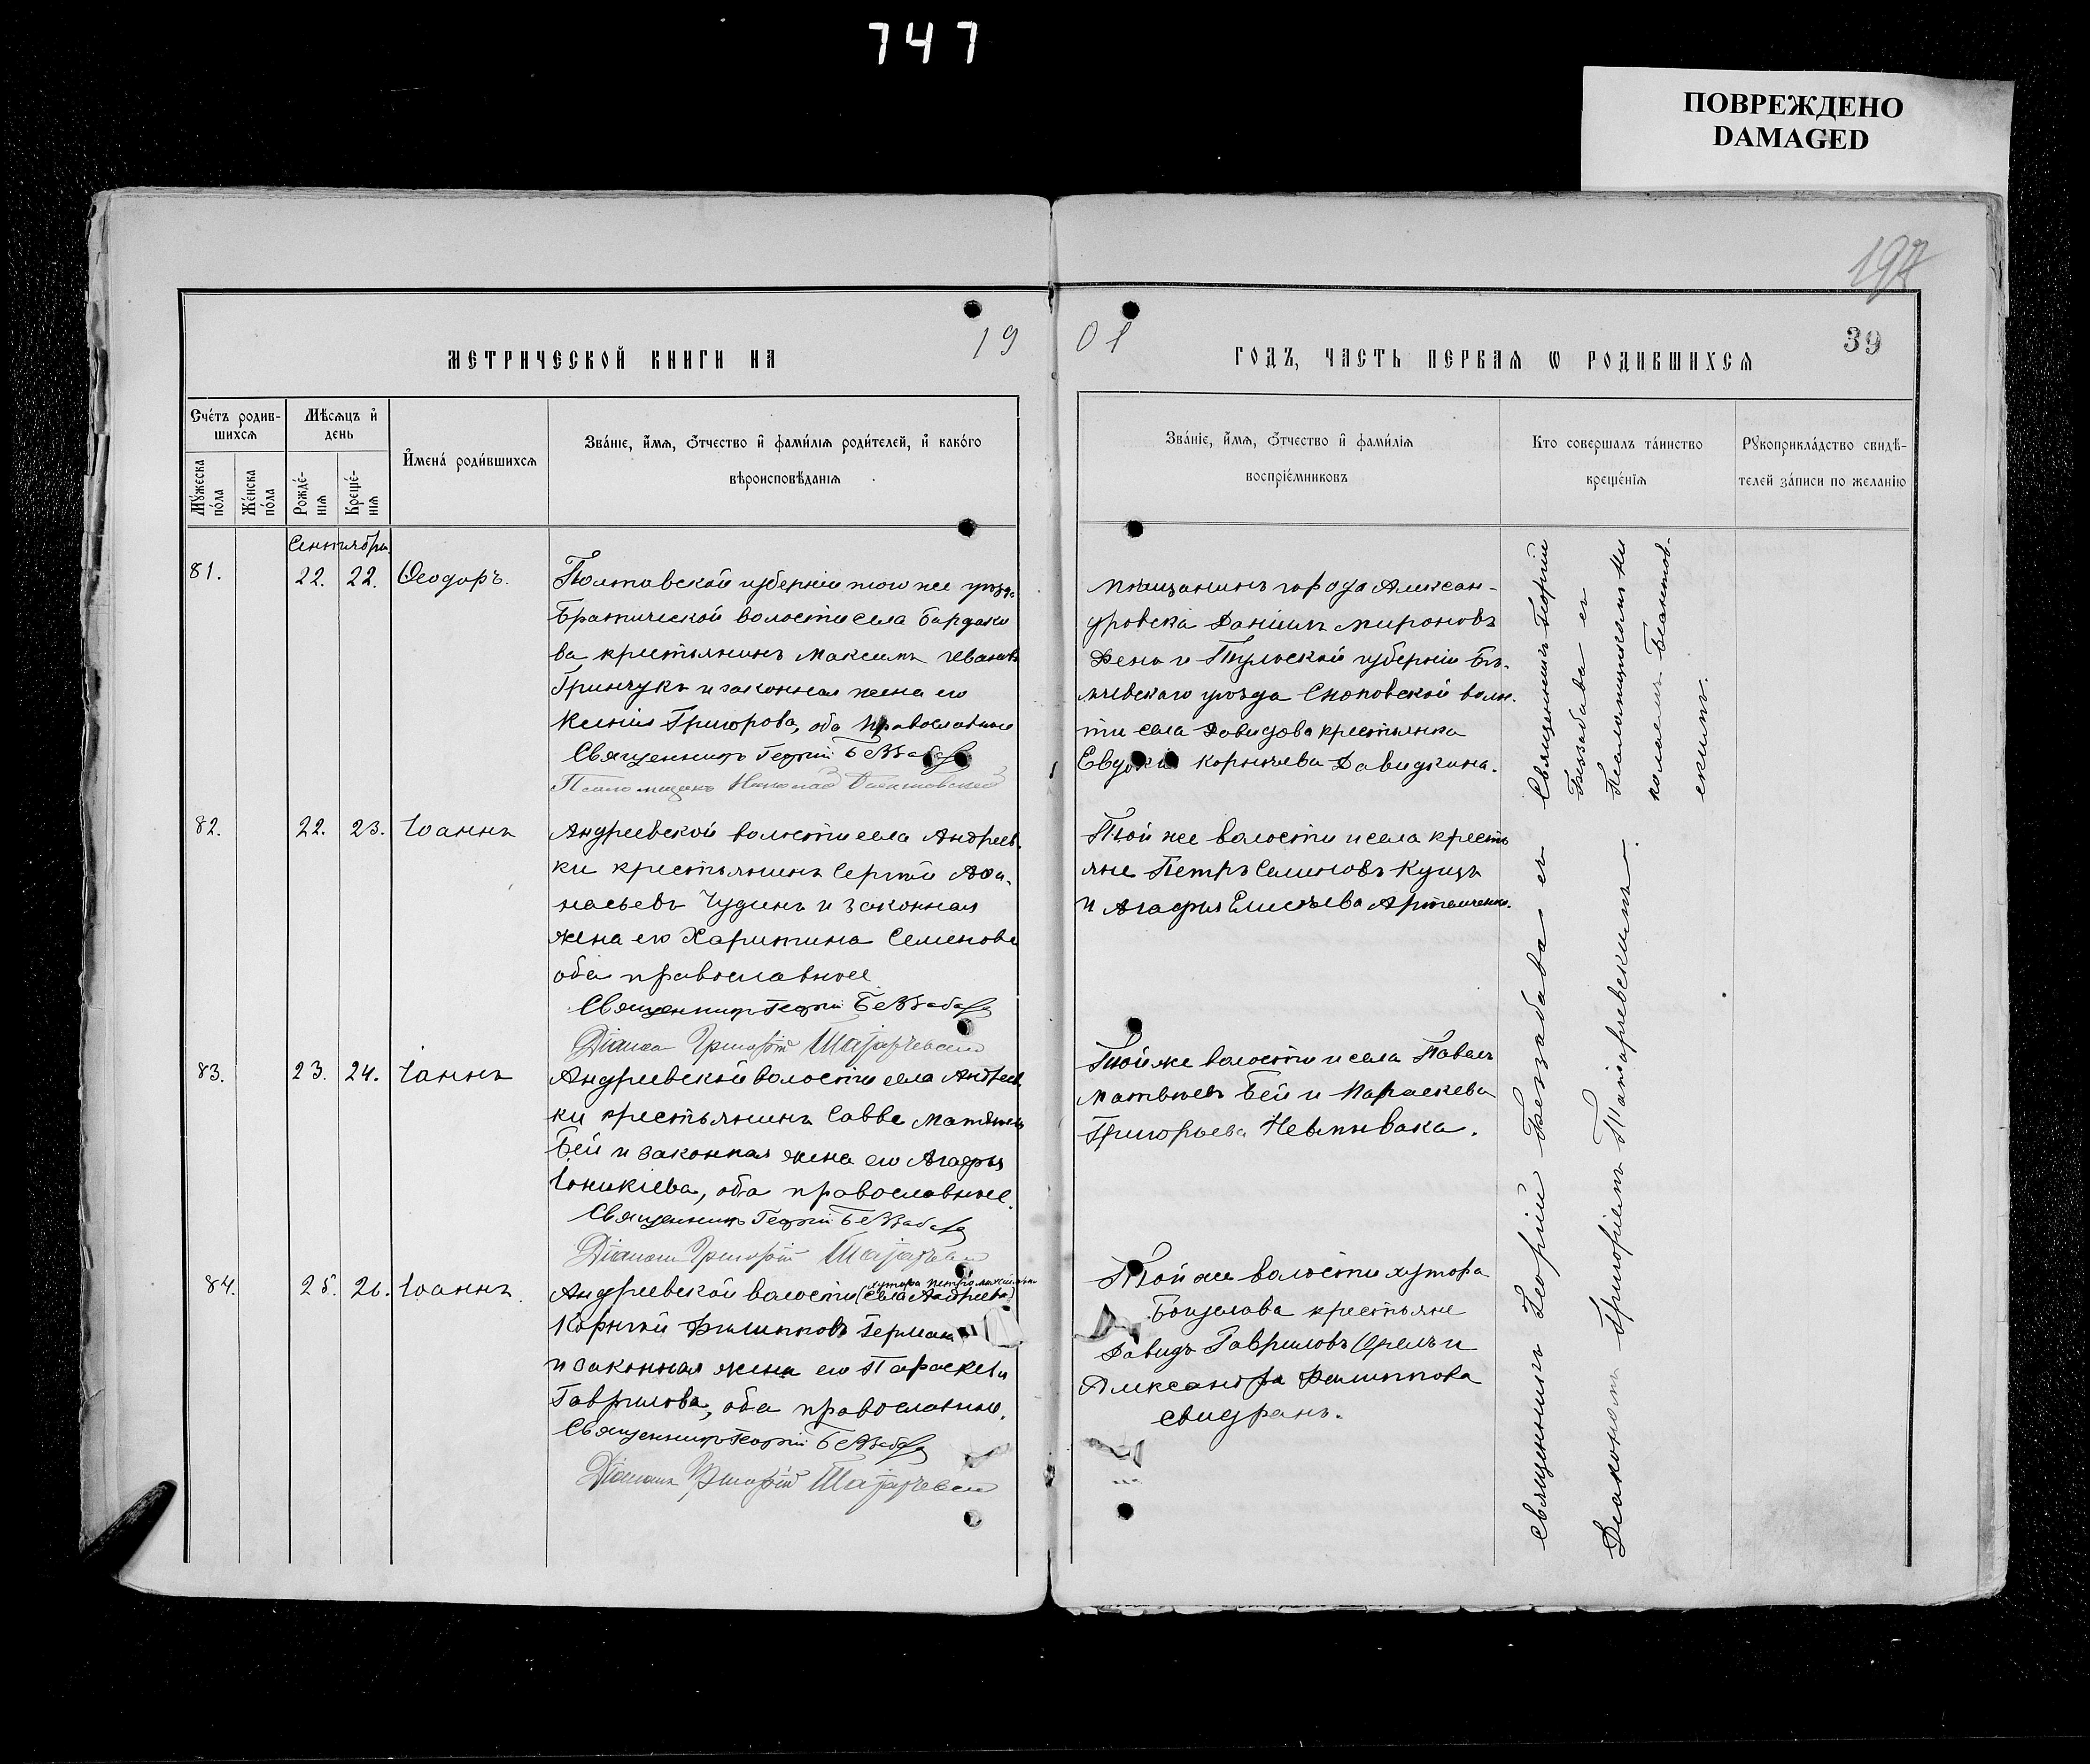 747
ПОВРЕЖДЕНО
DAMAGED
197
39
МЕТРИЧЕСКОЙ КНИГИ НА 19
01 ГОДЪ, ЧАСТЬ ПЕРВАѦ Ѡ РОДИВШИХСѦ
Счéтъ родив-
шихсѧ
Мꙋ́жеска
по́ла
Же́нска
по́ла
Мѣ́сѧцъ и҆
день
Рожде́-
нїѧ
Креще́-
нїѧ
И҆мена́ роди́вшихсѧ
Зва́нїе, и҆́мѧ, ѻ҆́тчество и҆ фами́лїѧ роди́телей, и҆ како́го
вѣроисповѣ́данїѧ
Зва́нїе, и҆́мѧ, ѻ҆́тчество и҆ фами́лїѧ
воспрїе́мниковъ
Кто совершалъ та́инство
креще́нїѧ
Рꙋкоприкла́дство свидѣ́-
телей за́писи по желанїю
Сентября
81.
22. 22.
Ѳеодоръ.
Полтавской губерніи того же уѣзда
волости села
ва крестьянинъ Максимъ Ивановъ
Гринчукъ и законная жена его
Ксенія Григорова, оба православные
Священникъ Георгій Беззабава
Псаломщикъ Николай
мѣщанинъ города Алексан-
дровска Даніилъ Мироновъ
и Тульской губерніи Бѣ-
левскаго уѣзда волос
ти села Давидова крестьянка
Евдокія Давидкина.
Священникъ Георгій
Беззабава съ
Псаломщикомъ Ни
колаемъ
скимъ.
82.
22. 23.
Іоаннъ
Андреевской волости села Андреев-
ки крестьянинъ Сергій Аѳа-
насьевъ Чудинъ и законная
жена его Харитина Семенова
оба православные.
Священникъ Георгій Беззабава
Діаконъ Григорій
Той же волости и села кресть
яне Петръ Семеновъ Куцъ
и Агафья Елисѣева
83.
23. 24.
Іоаннъ
Андреевской волости села Андреев
ки крестьянинъ Савва Матвѣевъ
Бей и законная жена его Агафья
Іоникіева, оба православные.
Священникъ Георгій Беззабава
Діаконъ Григорій
Той же волости и села Павелъ
Матвѣевъ Бей и Параскева
Григорьева Невпывака.
84.
25. 26.
Іоаннъ
хутора
Андреевской волости (села Андреевки)
Корнилій Филипповъ Герман
и законная жена его Параскева
Гаврилова, оба православные.
Священникъ Георгій Беззабава
Діаконъ Григорій
Той же волости хутора
крестьяне
Давидъ Гавриловъ Орелъ и
Александра Филиппова
Свидранъ.
Священникъ Георгій Беззабава съ
Діакономъ Григоріемъ